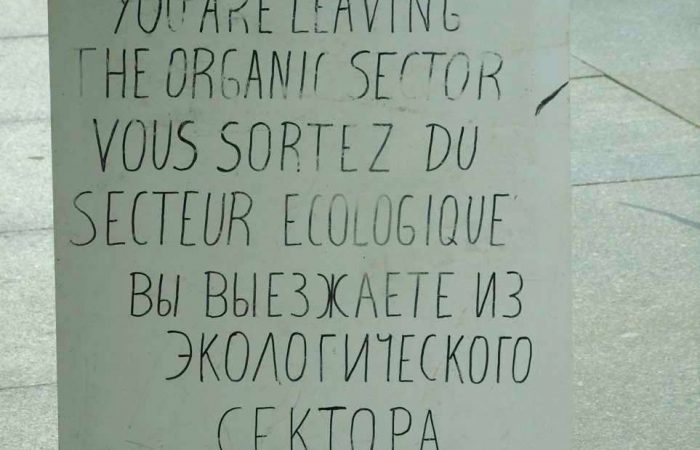 YOU ARE LEAVING
THE ORGANIC SECTOR
VOUS SORTEZ DU
SECTEUR ECOLOGIQUE
ВЫ ВЫЕЗЖАЕТЕ ИЗ
ЭКОЛОГИЧЕСКОГО
СЕКТОРА